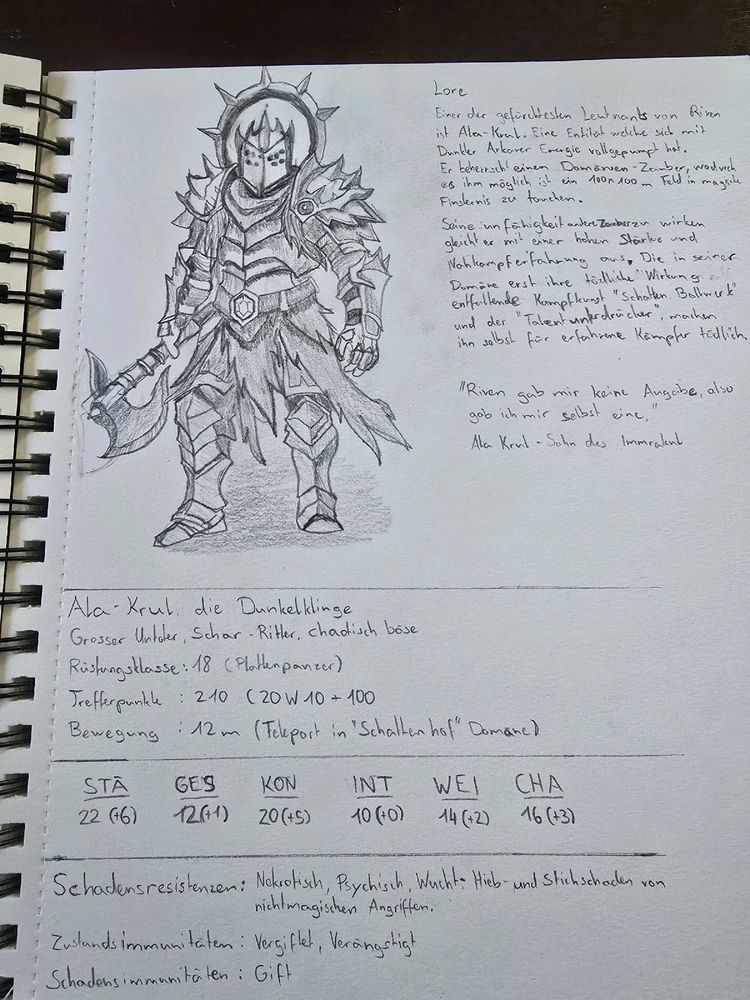 Lore
Einer der gefürchtesten Leutnants von Riven
ist Ala-Krul. Eine Entität welche sich mit
Dunkler Arkaner Energie vollgepumpt hat.
Er beherrscht einen Domänen-Zauber, wodurch
es ihm möglich ist ein 100x100 m Feld in magische
Finsternis zu tauchen.
Seine unfähigkeit andere Zauber zu wirken
gleicht er mit einer hohen Stärke und
Nahkampferfahrung aus. Die in seiner
Domäne erst ihre tödliche Wirkung
entfaltende Kampfkunst "Schatten Bollwerk"
und der "Talentunterdrücker", machen
ihn selbst für erfahrene Kämpfer tödlich.
"Riven gab mir keine Augabe, also
gab ich mir selbst eine."
Ala Krul - Sohn des
Ala-Krul, die Dunkelklinge
Grosser Untoter, Schar-Ritter, chaotisch böse
Rüstungsklasse: 18 (Plattenpanzer)
Trefferpunkte : 210 (20W10 + 100
Bewegung : 12 m (Teleport in "Schattenhof" Domäne)
STÄ GES KON INT WEI CHA
22 (+6) 12(+1) 20(+5) 10(+0) 14(+2) 16(+3)
Schadensresistenzen: Nekrotisch, Psychisch, Wucht- Hieb- und Stichschaden von
nichtmagischen Angriffen.
Zustandsimmunitäten : Vergiftet, Verängstigt
Schadensimmunitäten : Gift